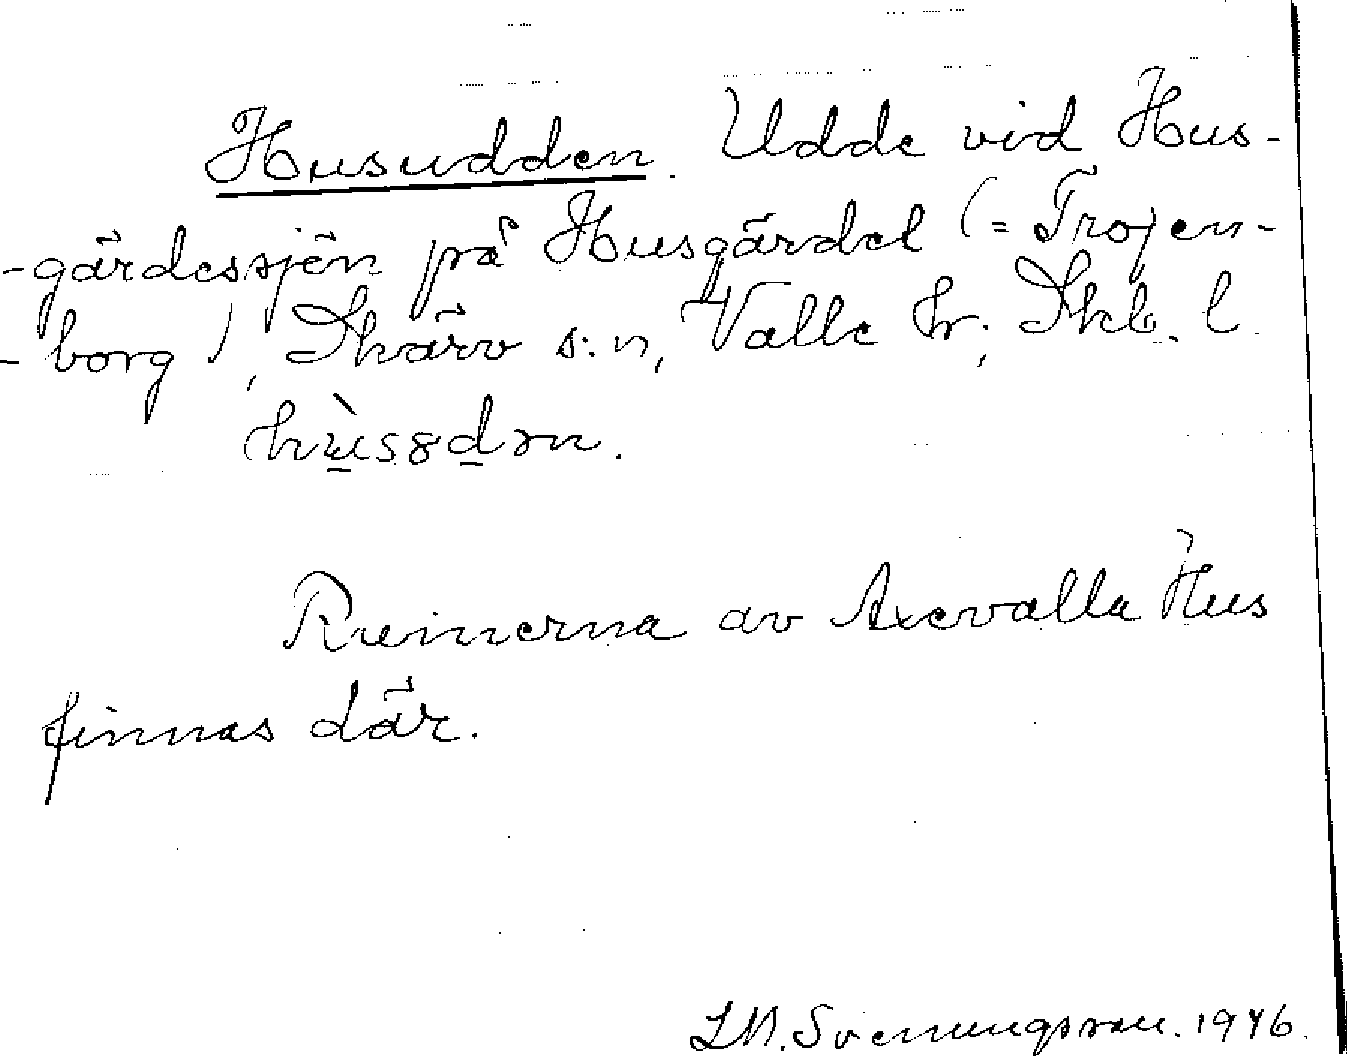 Husudden. Udde vid Hus-
-gärdessjön på Husgärdet (= Trojen-
-borg), Skärv s:n, Valle hr, Skb. l.
Ruinerna av Axevalla Hus
finnas där.
Svenungsson. 1946.